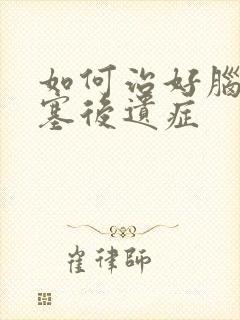 如何治好腦
塞後遺症
崔律師